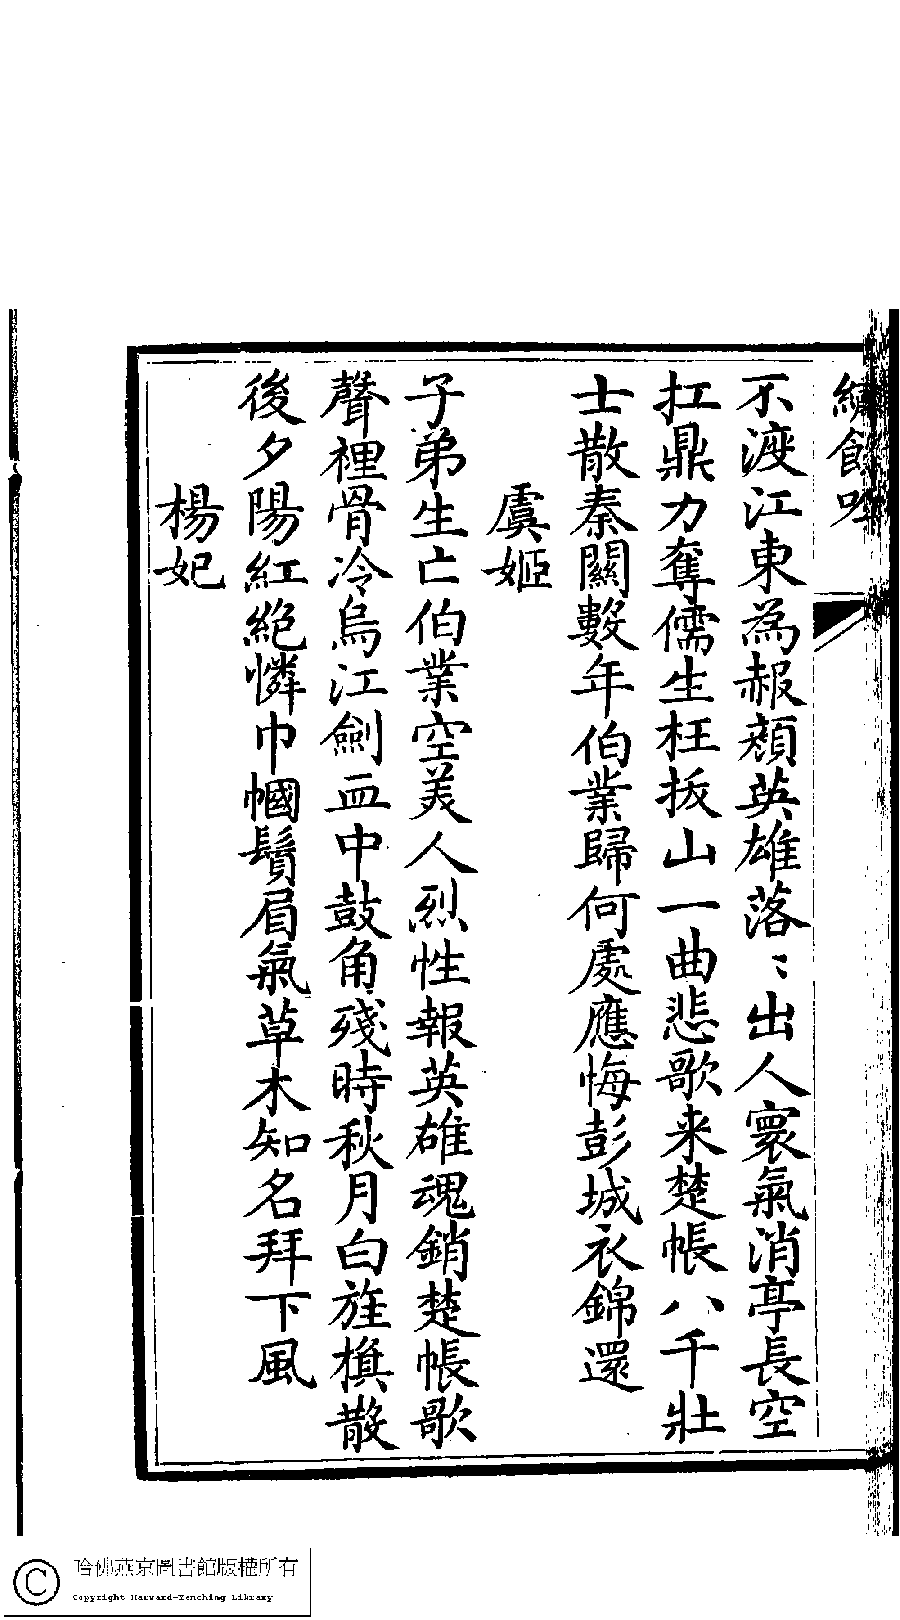 繡餘吟
不渡江東為赧顏英雄落〻出人寰氣消亭長空
扛鼎力奪儒生枉拔山一曲悲歌来楚帳八千壯
士散秦關數年伯業歸何處應悔彭城衣錦還
虞姬
子弟生亡伯業空美人烈性報英雄魂銷楚帳歌
聲裡骨冷烏江劍血中鼓角殘時秋月白旌旗散
後夕陽紅絕憐巾幗鬚眉氣草木知名拜下風
楊妃
哈佛燕京圖書館版權所有
Copyright Harvard-Yenching Library